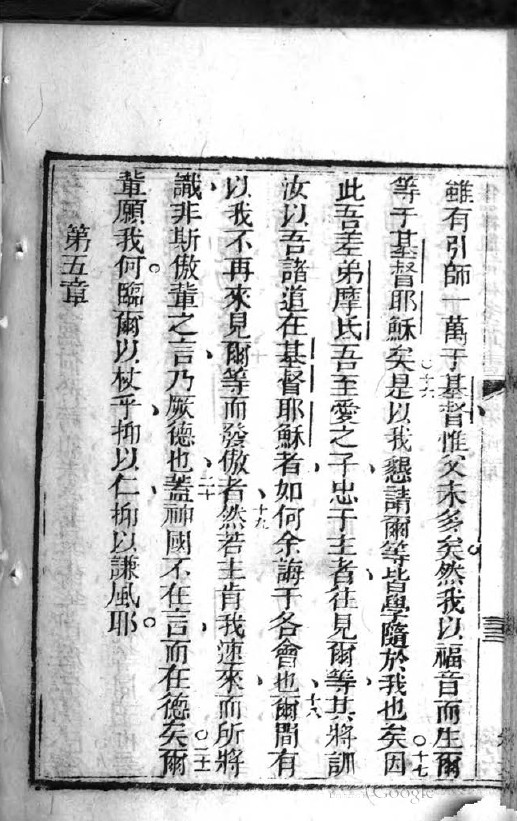 雖有引師一萬于基督惟父未多矣。然我以福音而生爾
等于基督耶穌矣。十六是以我懇請爾等皆學隨於我也矣。十七因
此吾差弟摩氏吾至愛之子、忠于主者、往見爾等、其將訓
汝以吾諸道在基督耶穌者、如何余誨于各會也、十八爾間有
以我不再來見爾等而發傲者、十九然若主肯我速來、而所將
識、非斯傲輩之言、乃厥德也、二十蓋神國不在言、而在德矣。二十一爾
輩願我何臨爾。以杖乎、抑以仁、抑以謙風耶。
第五章
Google